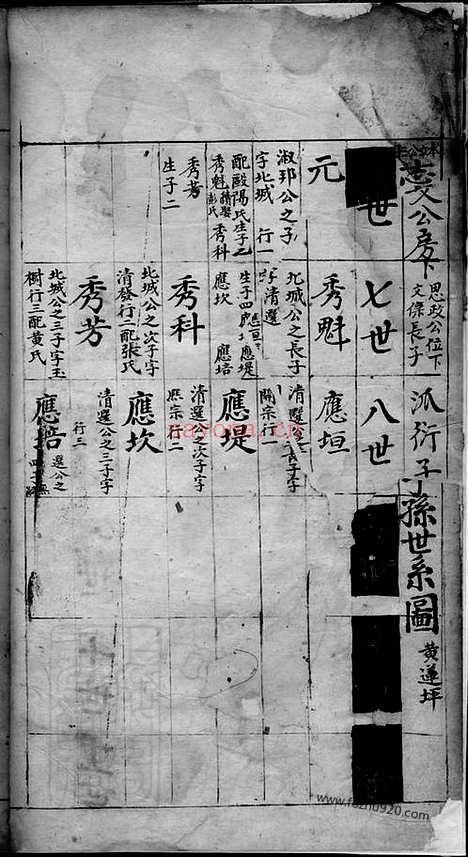 志文公房下
思政公位下
文條長子
派衍子孫世系圖
黃蓮坪
世
七世
八世
元
淑玕公之子
字北城 行一
配歐陽氏生子
秀魁 秀科
秀芳
生子二
秀魁
北城公之長子
字清選
生子四 應垣 應堤
應坎 應培
秀科
北城公之次子字
清發行二配張氏
秀芳
北城公之三子字玉
樹行三配黃氏
應垣
長子字
開宗行一
應堤
清選公之次子字
熙宗行二
應坎
清選公之三子字
行三
應培
選公之
nayona.cn
www.fozhu920.com